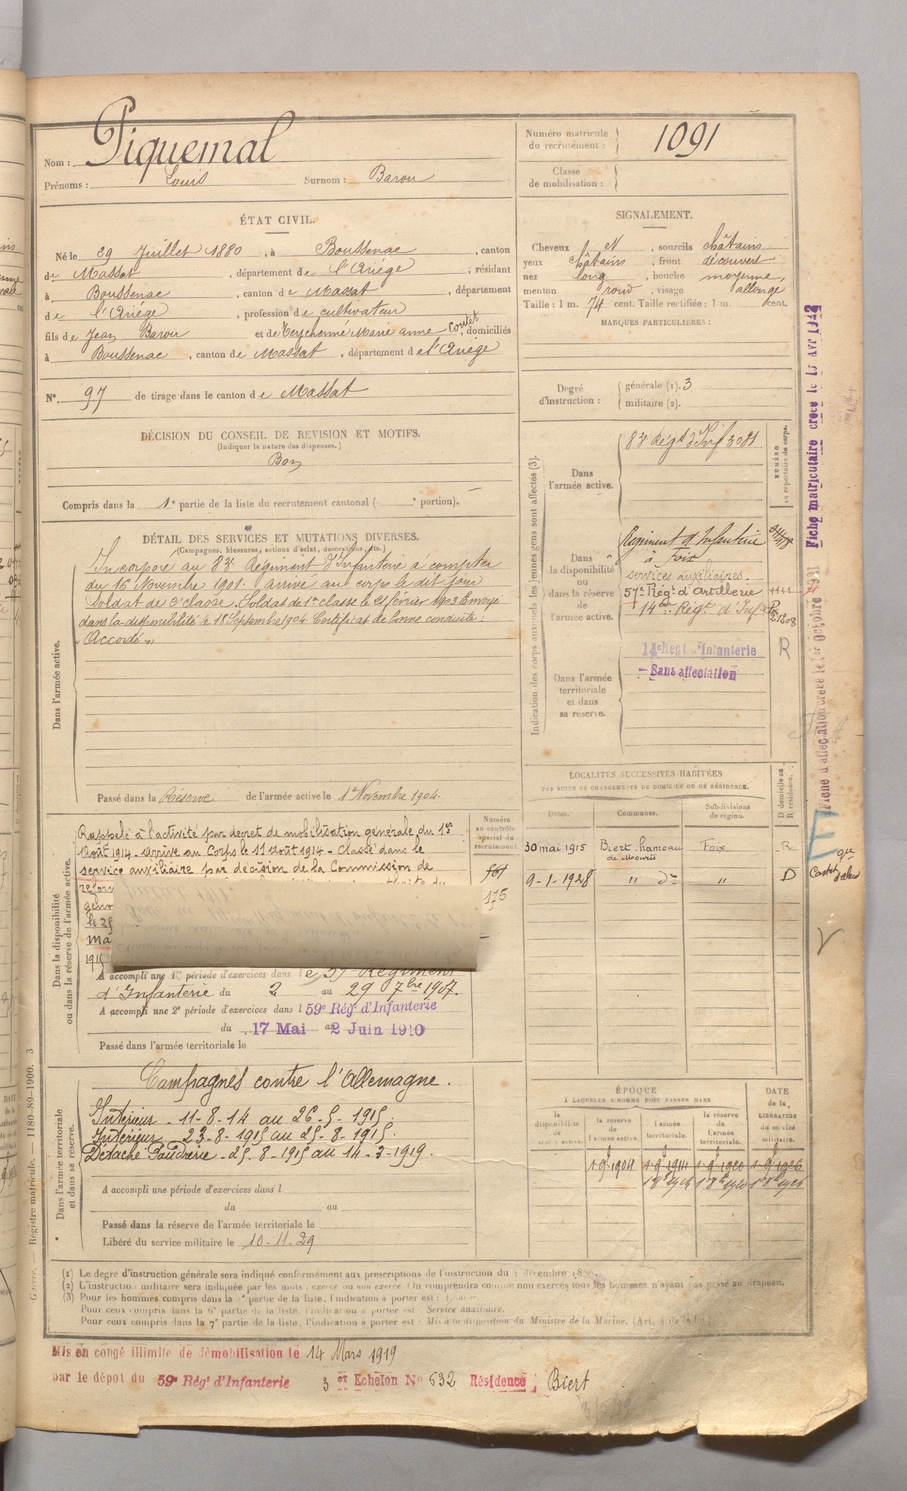 Nom : Piquemal
Prénoms : Louis Surnom : Barou
Numéro matricule du recrutement : 1091
Classe de mobilisation :
ÉTAT CIVIL.
Né le 29 Juillet 1880, à Boussenac, canton
de Massat, département de l'Ariége, résidant
à Boussenac, canton de Massat, département
de l'Ariége, profession de cultivateur
fils de Jean Barou et de Marie anne Coutet, domiciliés
à Boussenac, canton de Massat, département de l'Ariége
N° 97 de tirage dans le canton de Massat
SIGNALEMENT.
Cheveux N, sourcils châtains
yeux châtains, front découvert
nez long, bouche moyenne,
menton rond, visage allongé
Taille : 1 m. 74 cent. Taille rectifiée : 1 m. cent.
MARQUES PARTICULIÈRES :
Degré d'instruction : générale (1). 3
militaire (2).
DÉCISION DU CONSEIL DE REVISION ET MOTIFS.
(Indiquer la nature des dispenses.)
Bon
Compris dans la 1e partie de la liste du recrutement cantonal ( e portion).
DÉTAIL DES SERVICES ET MUTATIONS DIVERSES.
(Campagnes, blessures, actions d'éclat, décorations, etc.)
Dans l'armée active.
Incorporé au 83e Régiment d'Infanterie à compter
du 16 Novembre 1901. arrivé au corps le dit jour
Soldat de 2e classe. Soldat de 1e classe le 21 février 1903 Envoyé
dans la disponibilité le 18 Septembre 1904 Certificat de bonne conduite :
"Accordé"
Passé dans la Réserve de l'armée active le 1 Novembre 1904
Indication des corps auxquels les jeunes gens sont affectés (3).
NUMÉRO au répertoire du corps.
Dans l'armée active.
83e Régt d'Inf 3081
Dans la disponibilité ou dans la réserve de l'armée active.
Régiment d'Infanterie
à Foix
services auxiliaires.
57e Régt d'Artillerie
14e Régt d'Infie
R
Dans l'armée territoriale et dans sa réserve.
14e Régt d'Infanterie
Sans affectation
LOCALITÉS SUCCESSIVES HABITÉES
PAR SUITE DE CHANGEMENTS DE DOMICILE OU DE RÉSIDENCE.
Dates. Communes. Subdivisions de région. D domicile ou R résidence.
30 mai 1915 Biert hameau Foix R
9-1-1928 " do " D
Dans la disponibilité ou dans la réserve de l'armée active.
Numéro au contrôle spécial du recrutement
Rappelé à l'activité par décret de mobilisation générale du 1er
Août 1914. arrivé au Corps le 11 août 1914 - Classé dans le
service auxiliaire par décision de la Commission de
175
A accompli une 1re période d'exercices dans le 59e Régiment
d'Infanterie du 2 au 29 7bre 1907.
A accompli une 2e période d'exercices dans l 59e Régt d'Infanterie
du 17 Mai au 2 Juin 1910
Passé dans l'armée territoriale le
Dans l'armée territoriale et dans sa réserve.
Campagnes contre l'Allemagne.
Intérieur - 11-8-14 au 26-5-1915.
Intérieur - 23-8-1915 au 25-8-1915.
Détaché Poudrerie - 25-8-1915 au 14-3-1919.
A accompli une période d'exercices dans l
du au
Passé dans la réserve de l'armée territoriale le
Libéré du service militaire le 10-11-29
ÉPOQUE
À LAQUELLE L'HOMME DOIT PASSER DANS
la disponibilité de l'armée active.
la réserve de l'armée active.
l'armée territoriale.
la réserve de l'armée territoriale.
DATE de la LIBÉRATION du service militaire.
(1) Le degré d'instruction générale sera indiqué conformément aux prescriptions de l'instruction du
(2) L'instruction militaire sera indiquée par les mots : exercé ou non exercé. On comprendra comme non exercés tous les hommes n'ayant pas passé au drapeau.
(3) Pour les hommes compris dans la partie de la liste, l'indication à porter est :
Pour ceux compris dans la 6e partie de la liste, l'indication à porter est : Service auxiliaire.
Pour ceux compris dans la 7e partie de la liste, l'indication à porter est : Mis à la disposition du Ministre de la Marine.
Mis en congé illimité de démobilisation le 14 Mars 1919
par le dépôt du 59e Régt d'Infanterie 3 er Echelon No 632 Résidence : Biert
Registre matricule. — 1180-89-1900. 3